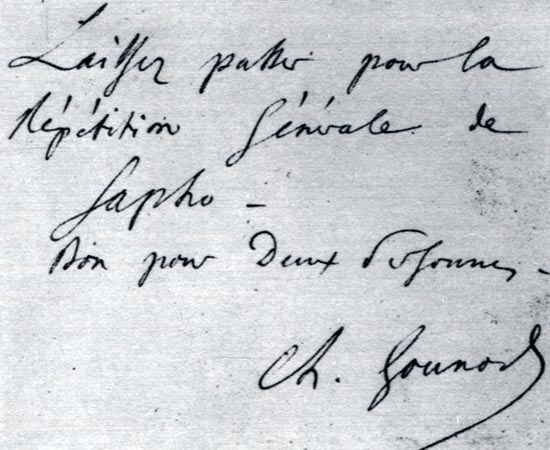 Laissez passer pour la
Répétition Générale de
Sapho -
Bon pour Deux Personnes -
Ch. Gounod